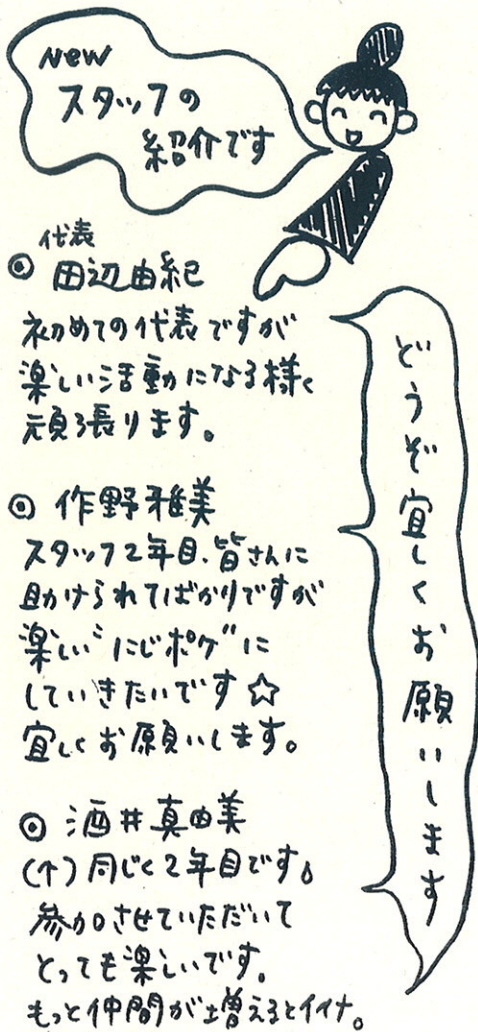 New
スタッフの
紹介です
代表
◎ 田辺由紀
初めての代表ですが
楽しい活動になる様
頑張ります。
◎ 作野雅美
スタッフ2年目、皆さんに
助けられてばかりですが
楽しい"にじポケ"に
していきたいです☆
宜しくお願いします。
◎ 酒井真由美
(↑)同じく2年目です。
参加させていただいて
とっても楽しいです。
もっと仲間が増えるとイイナ。
どうぞ宜しくお願いします